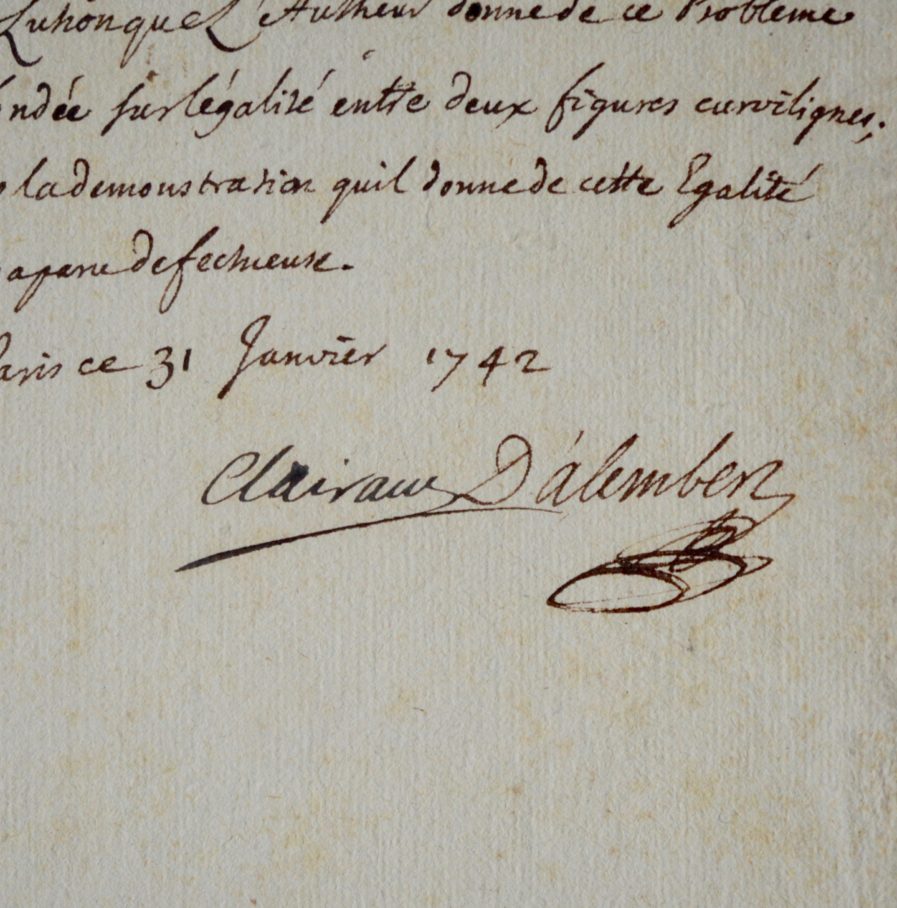 Luhon que L'Autheur donne de ce Probleme
ndée sur légalité entre deux figures curvilignes;
la demonstration quil donne de cette Egalité
a paru defectueuse.
aris ce 31 Janvier 1742
Clairaut D'alembert